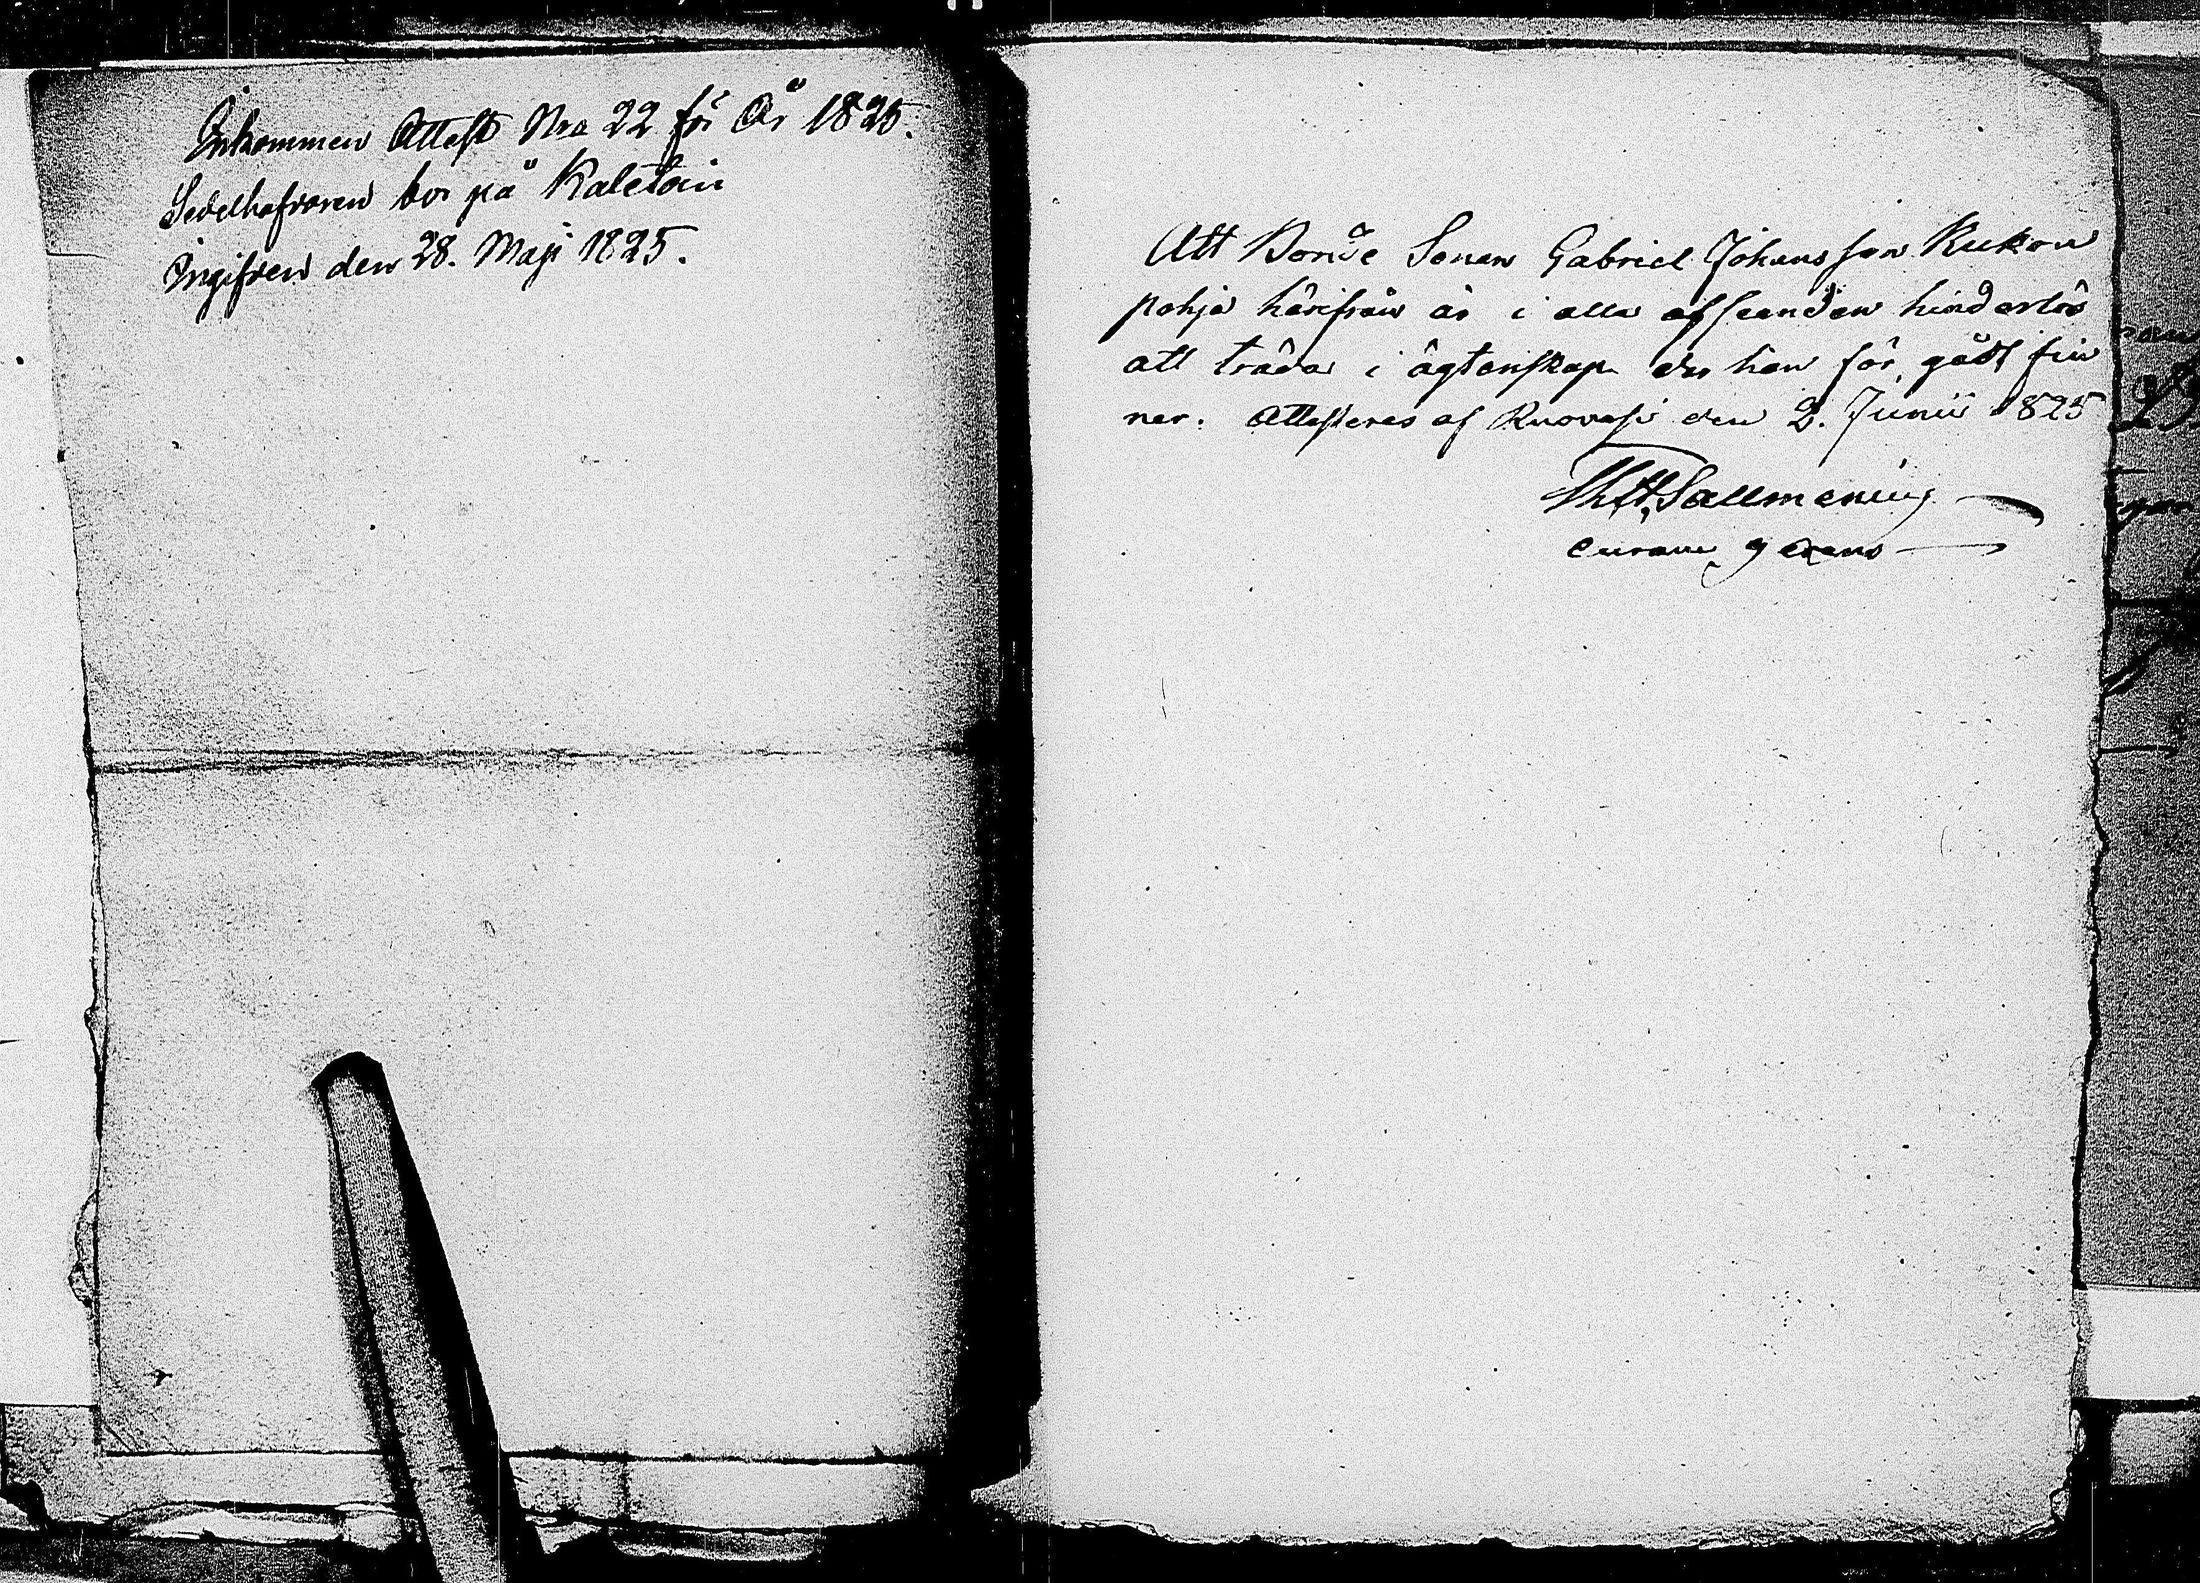 Inkommen Attest Nro 22 för År 1825.
Sedelhafvaren bor på Kaletoin
Ingifven den 28. Maji 1825.
Att Bonde Sonen Gabriel Johansson Kukon
pohja härifrån är i alla afseenden hinderlös
att träda i ägtenskap der han för godt fin
ner. Attesteras af Ruovesi den 2. Junii 1825
Sallmenius
curam gerens